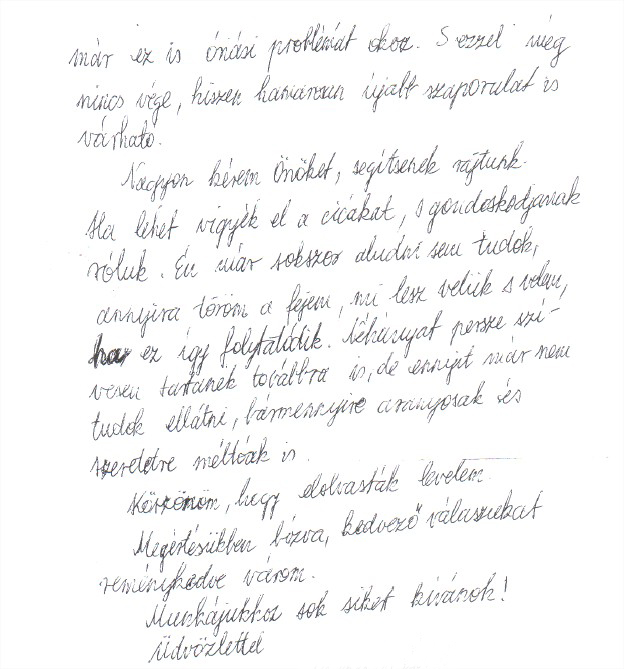 már ez is óriási problémát okoz. S ezzel még
nincs vége, hiszen hamarosan újabb szaporulat is
várható.
Nagyon kérem Önöket, segítsenek rajtunk.
Ha lehet vigyék el a cicákat, s gondoskodjanak
róluk. Én már sokszor aludni sem tudok,
annyira töröm a fejem, mi lesz velük s velem,
ha ez így folytatódik. Néhányat persze szí-
vesen tartanék továbbra is, de ennyit már nem
tudok ellátni, bármennyire aranyosak és
szeretetre méltóak is.
Köszönöm, hogy elolvasták levelem.
Megértésükben bízva, kedvező válaszukat
reménykedve várom.
Munkájukhoz sok sikert kívánok!
Üdvözlettel